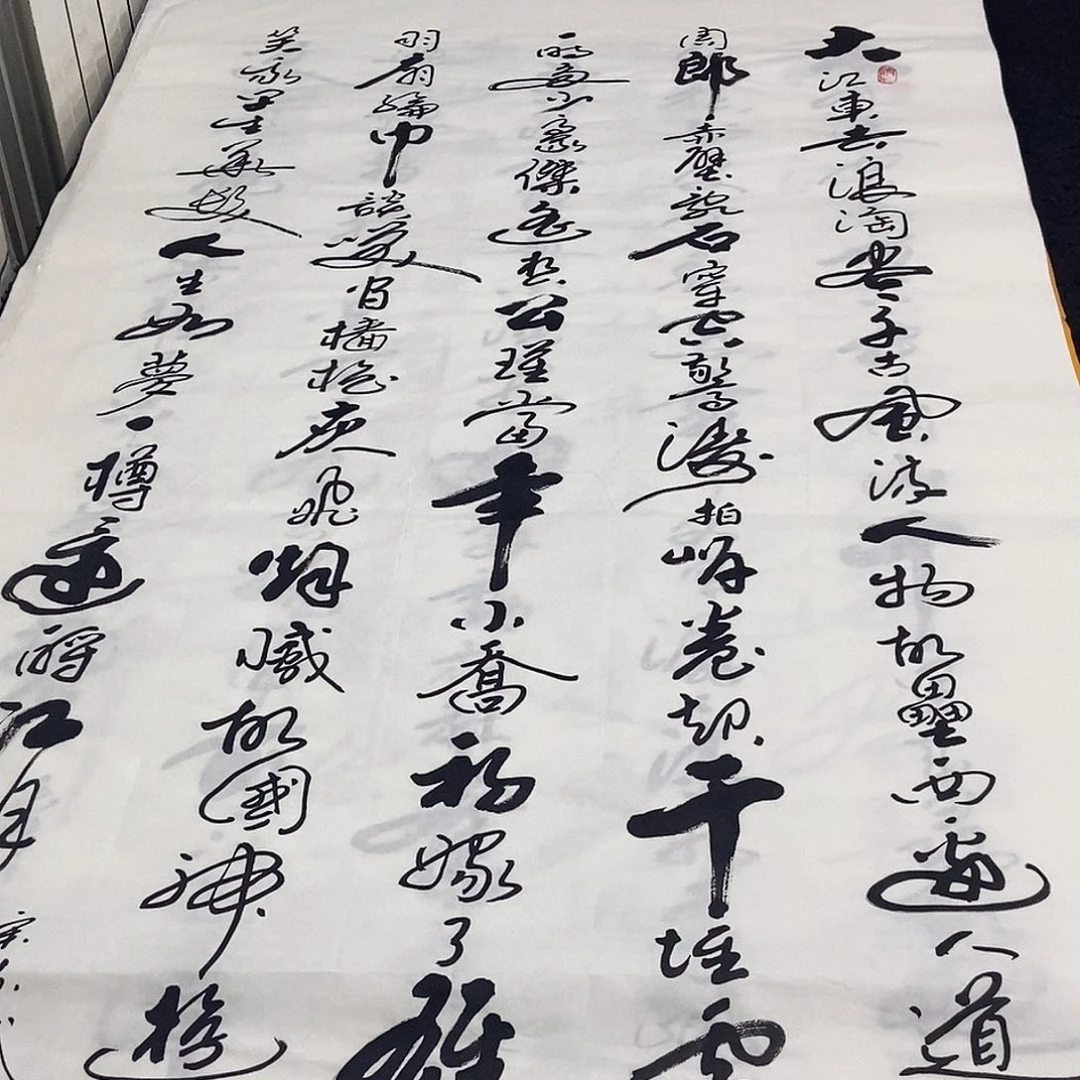 大江東去浪淘盡千古風流人物故壘西邊人道
周郎赤壁亂石穿空驚濤拍岸卷起千堆雪
一時多少豪傑遙想公瑾當年小喬初嫁了雄
羽扇綸巾談笑間檣櫓灰飛烟滅故國神遊
笑我早生華髮人生如夢一樽還酹江月